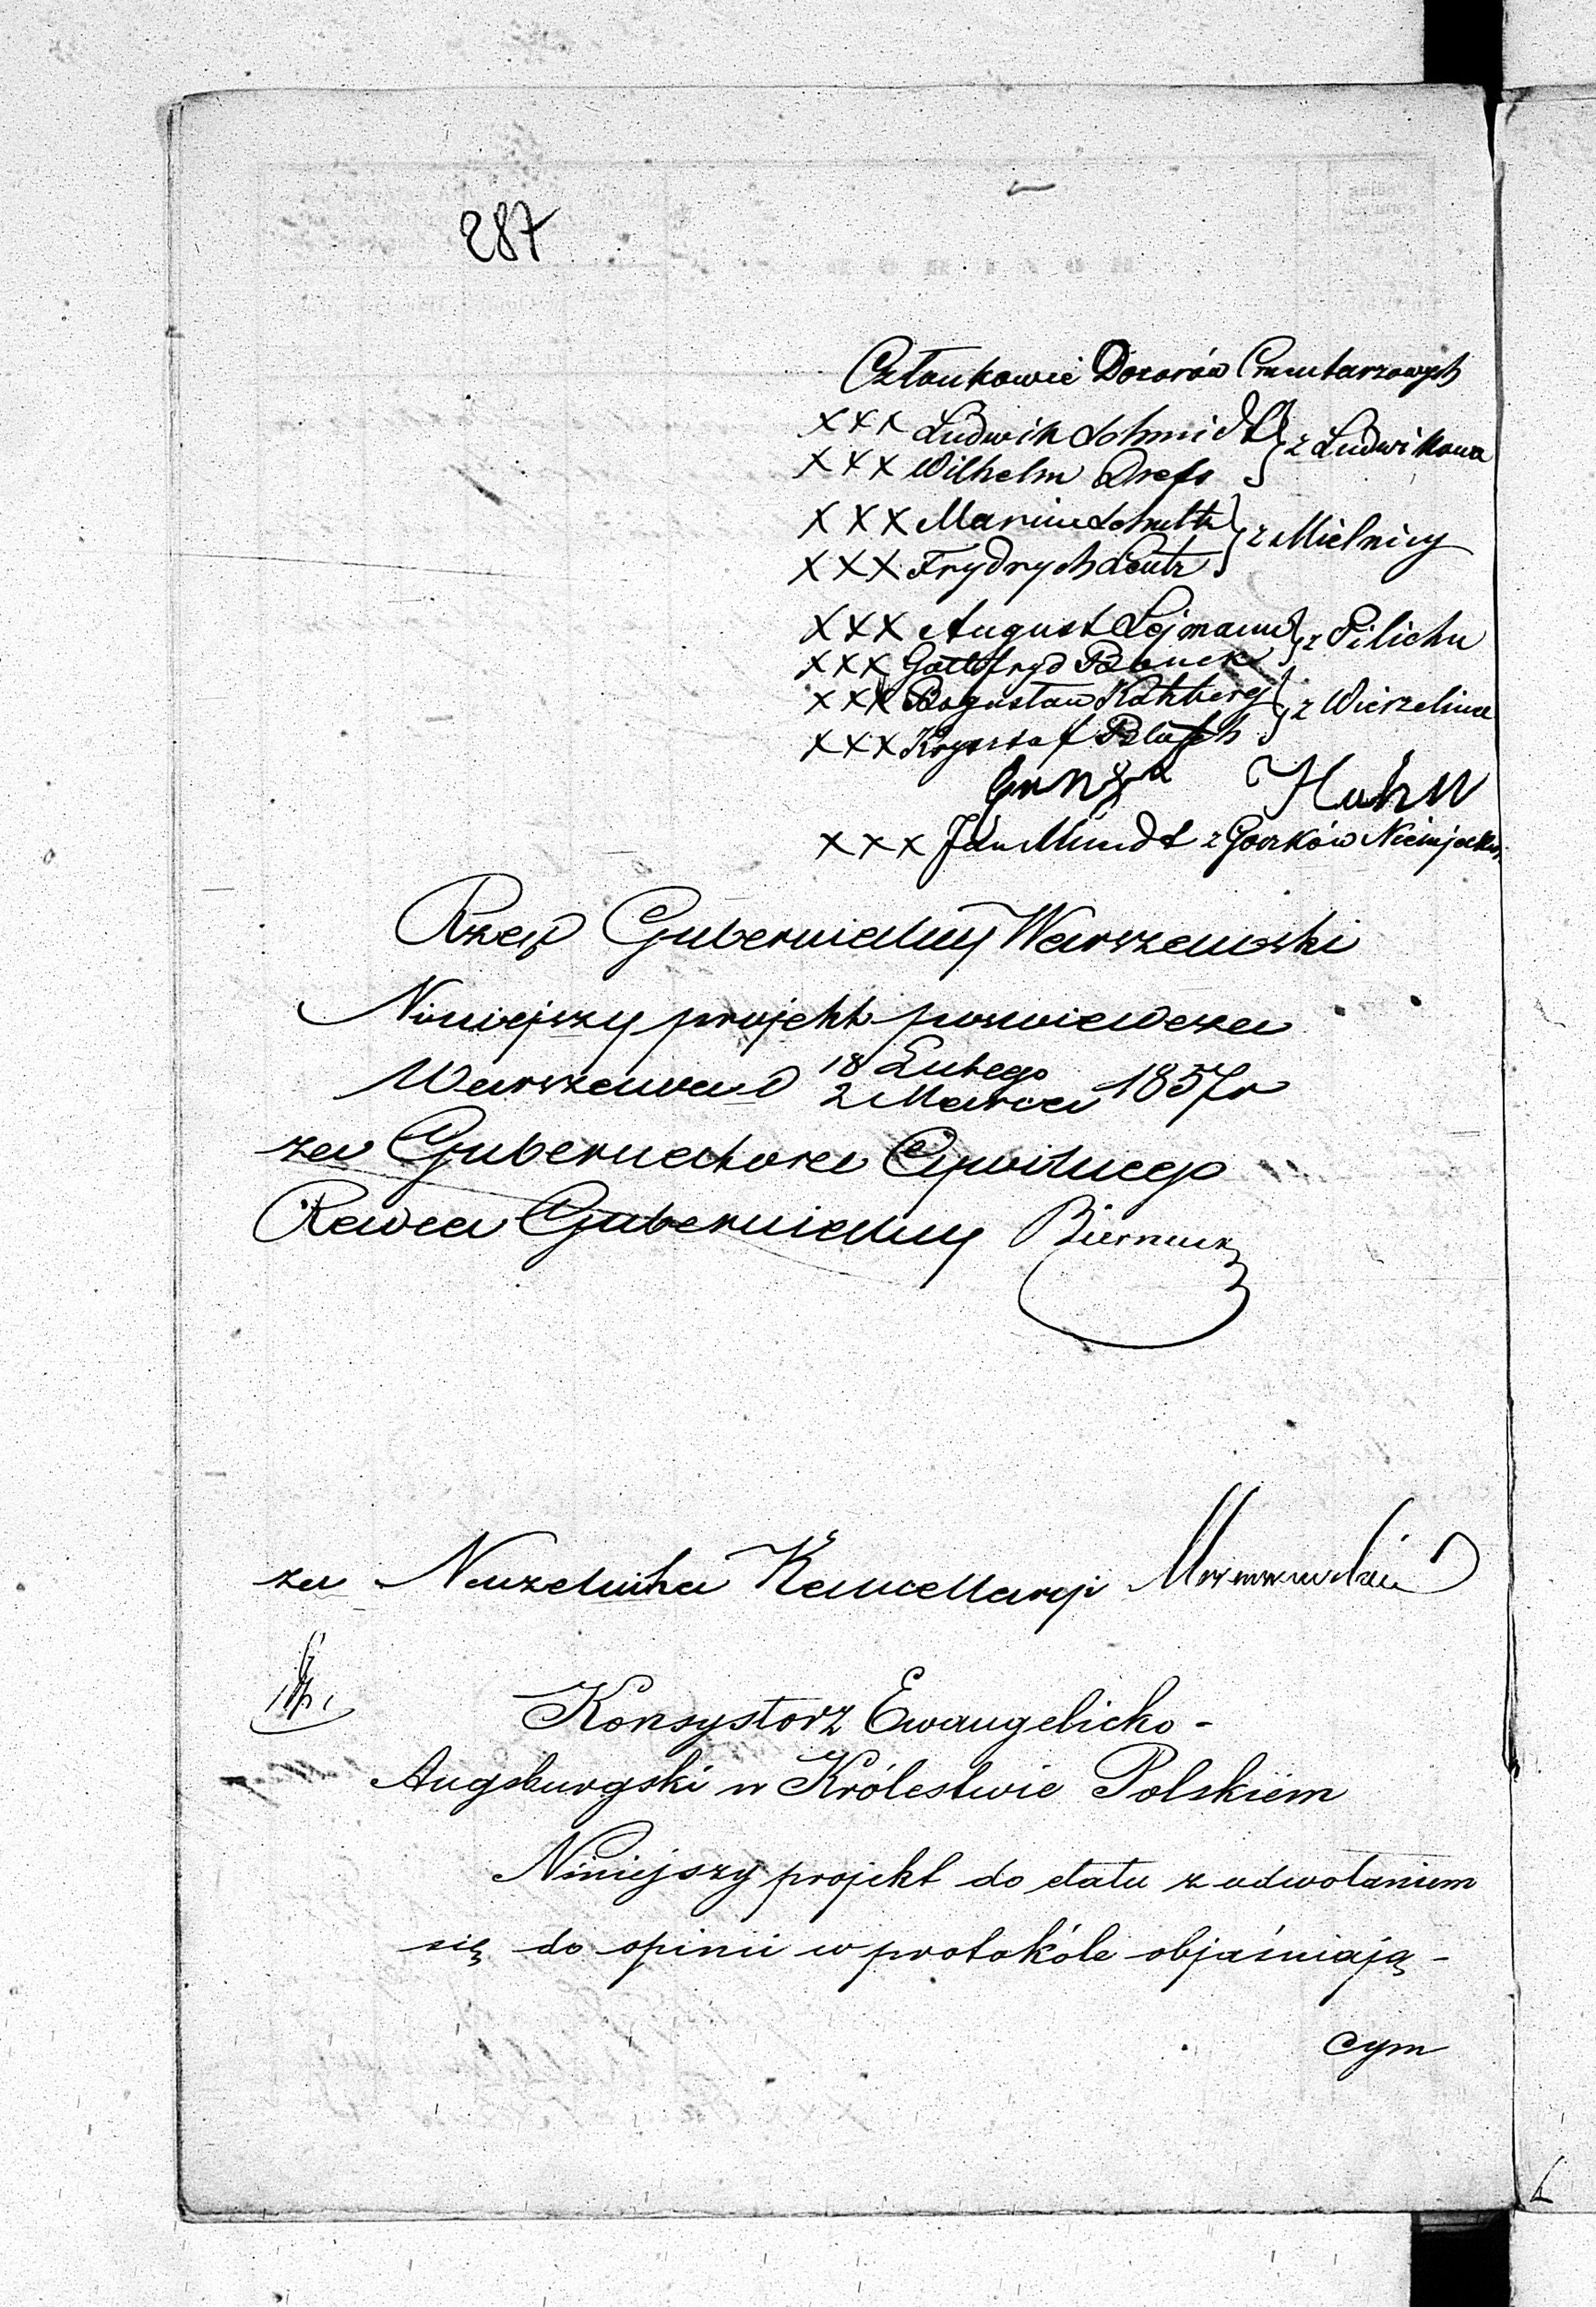 287
Członkowie Dozorów Cmentarzowych
XXX Ludwik Schmidt } z Ludwikowa
XXX Wilhelm Drefs
XXX Marcin Schultz } z Mielnicy
XXX Frydrych Lentz
XXX August Lejmann } z Pilichu
XXX Gottfryd Bonck
XXX Bogusław Katzberg } z Wierzelina
XXX Krysztof Blüsch
Hahn
XXX Jan Mundt z Goczków Niemjeckich
Rząd Gubernialny Warszawski
Niniejszy projekt poswiadcza
Warszawa d 18 Lutego / 2 Marca 1857 r
za Gubernatora Cywilnego
Radca Gubernialny Biernacki
za Naczelnika Kancellaryi
Konsystorz Ewangelicko-
Augsburgski w Królestwie Polskiem
Niniejszy projekt do etatu z odwołaniem
się do opinii w protokóle objaśniają-
cym